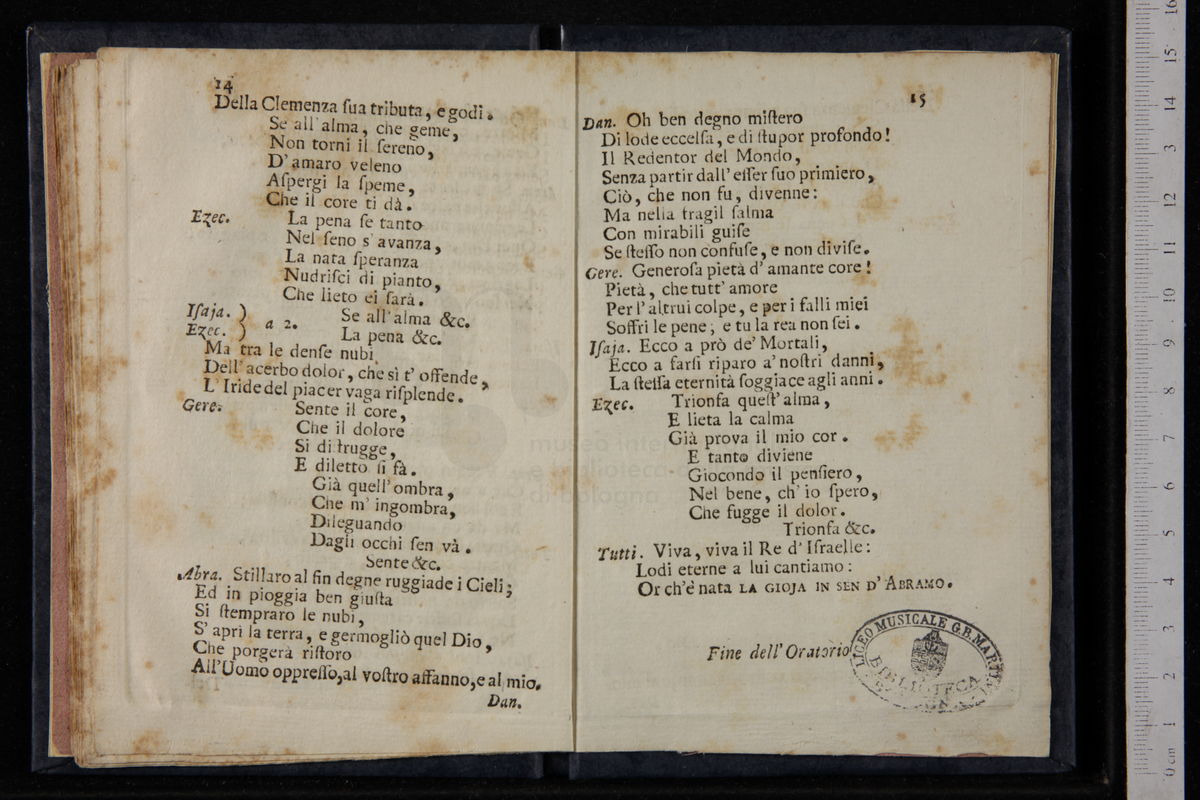 14
Della Clemenza ſua tributa, e godi.
Se all'alma, che geme,
Non torni il ſereno,
D'amaro veleno
Aſpergi la ſpeme,
Che il core ti dà.
Ezec. La pena ſe tanto
Nel ſeno s'avanza,
La nata ſperanza
Nudriſci di pianto,
Che lieto ei ſarà.
Iſaja. ) Se all'alma &c.
a 2.
Ezec. ) La pena &c.
Ma tra le denſe nubi
Dell'acerbo dolor, che sì t'offende,
L'Iride del piacer vaga riſplende.
Gere. Sente il core,
Che il dolore
Si diſtrugge,
E diletto ſi fà.
Già quell'ombra,
Che m'ingombra,
Dileguando
Dagli occhi ſen và.
Sente &c.
Abra. Stillaro al fin degne ruggiade i Cieli;
Ed in pioggia ben giuſta
Si ſtempraro le nubi,
S'aprì la terra, e germogliò quel Dio,
Che porgerà riſtoro
All'Uomo oppreſſo, al voſtro affanno, e al mio.
Dan.
15
Dan. Oh ben degno miſtero
Di lode eccelſa, e di ſtupor profondo!
Il Redentor del Mondo,
Senza partir dall'eſſer ſuo primiero,
Ciò, che non fu, divenne:
Ma nella fragil ſalma
Con mirabili guiſe
Se ſteſſo non confuſe, e non diviſe.
Gere. Generoſa pietà d'amante core!
Pietà, che tutt'amore
Per l'altrui colpe, e per i falli miei
Soffri le pene; e tu la rea non ſei.
Iſaja. Ecco a prò de' Mortali,
Ecco a farſi riparo a' noſtri danni,
La ſteſſa eternità ſoggiace agli anni.
Ezec. Trionfa queſt'alma,
E lieta la calma
Già prova il mio cor.
E tanto diviene
Giocondo il penſiero,
Nel bene, ch'io ſpero,
Che fugge il dolor.
Trionfa &c.
Tutti. Viva, viva il Re d'Iſraelle:
Lodi eterne a lui cantiamo:
Or ch'è nata LA GIOJA IN SEN D'ABRAMO.
Fine dell'Oratorio
LICEO MUSICALE G.B. MARTINI
BIBLIOTECA
museo inter
e biblioteca
di bologna
0 cm 1 2 3 4 5 6 7 8 9 10 11 12 13 14 15 16